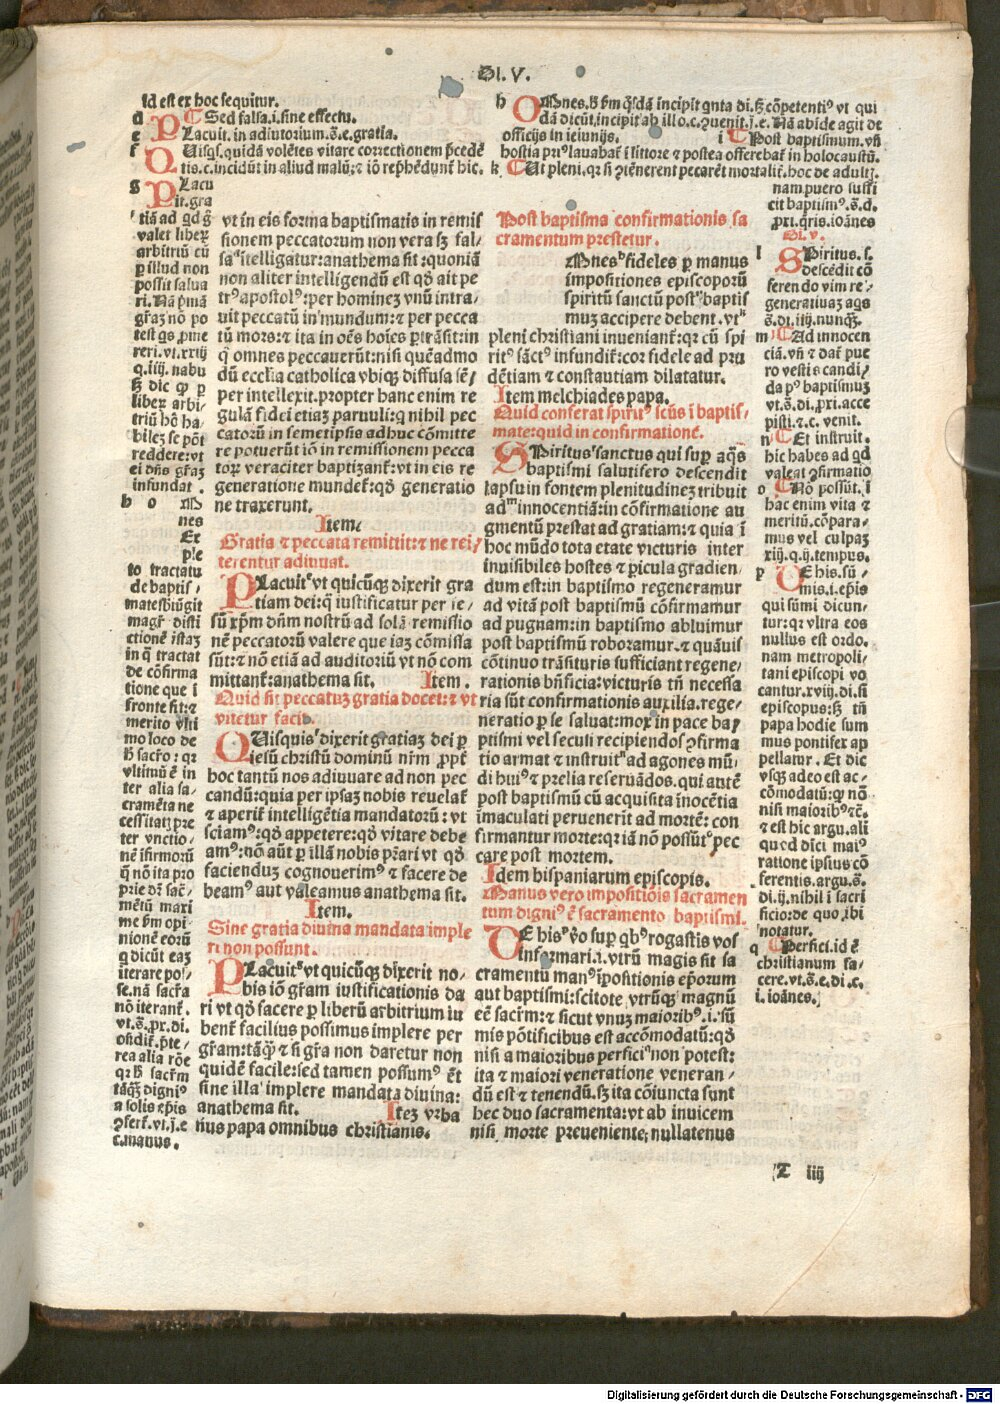 Di. V.
Id est ex hoc sequitur.
d ¶ Sed falsa.i.sine effectu.
e PLacuit.in adiutorium.s̄.e.gratia.
f QUisqs.quidā volētes vitare correctionem p̄cedē
tis.c.incidūt in aliud malū:⁊ iō rep̄hēdunt̄ hic.
g PLacu
it.gra
tiā ad qd ḡ
valet liberꝝ
arbitriū cū
ꝑ illud non
possit salua
ri. Nā p̄mā
gr̄az nō po
test qs ꝓme
reri.vt.xxiij
q.iiij.nabu
ꝫ dic ꝙ ꝑ
liberꝝ arbi/
triū hō ha/
bilez se pōt
reddere:vt
ei dn̄s gr̄az
infundat.
h o M
nes
Ex
ple
to tractatu
de baptis/
mate subiūgit
magr̄ disti
ctionē istaz
in q̄ tractat
de cōfirma
tione que ī
fronte fit:⁊
merito vlti
mo loco de
h̄ sacro: qꝛ
vltimū ē in
ter alia sa/
cramēta ne
cessitatꝭ pre
ter vnctio/
nē īfirmorū
q̄ nō ita pro
prie dr̄ sac̄/
mētū maxi
me ꝑm opi
nionē eorū
q dicūt eaz
iterare pos/
se.nā sacr̄a
nō iterant̄.
vt.s̄.pr.di.
ostēdit̄.p̄te/
rea alia rōe
qꝛ h̄ sacr̄m
tāqꝫ digniꝰ
a solis ep̄is
ꝯfert̄.vt.j.e
c.manus.
vt in eis forma baptismatis in remis
sionem peccatorum non vera sꝫ fal/
sa ītelligatur:anathema sit:quoniā
non aliter intelligendū est qd̄ ait pe
trꝰ apostolꝰ:per hominez vnū intra/
uit peccatū in mundum:⁊ per pecca
tū mors:⁊ ita in oēs hoīes ꝑtrāsit:in
q̄ omnes peccauerūt:nisi quēadmo
dū eccl̄ia catholica vbiqꝫ diffusa sē/
per intellexit.propter hanc enim re
gulā fidei etiaz paruuli:q nihil pec
catorū in semetipsis adhuc cōmitte
re potuerūt iō in remissionem pecca
torꝝ veraciter baptizant̄:vt in eis re
generatione mundet̄:qd̄ generatio
ne traxerunt.
Item.
Gratia ⁊ peccata remittit:⁊ ne rei/
terentur adiuuat.
PLacuit vt quicūqꝫ dixerit gra
tiam dei:q iustificatur per ie/
sū xp̄m dn̄m nostrū ad solā remissio
nē peccatorū valere que iaz cōmissa
sūt:⁊ nō etiā ad auditoriū vt nō com
mittant̄:anathema sit. Item.
Quid sit peccatuꝫ gratia docet:⁊ vt
vitetur facit.
QUisquis dixerit gratiaz dei ꝑ
iesū christū dominū nr̄m ꝓpt̄
hoc tantū nos adiuuare ad non pec
candū:quia per ipsaz nobis reuelat̄
⁊ aperit̄ intelligētia mandatorū : vt
sciamꝰ:qd̄ appetere:qd̄ vitare debe
amꝰ:nō aūt ꝑ illā nobis p̄rari vt qd̄
faciendum cognouerimꝰ ⁊ facere de
beamꝰ aut valeamus anathema sit.
Item.
Sine gratia diuina mandata imple
ri non possunt.
PLacuit vt quicūqꝫ dixerit no/
bis iō gr̄am iustificationis da
ri vt qd̄ facere ꝑ liberū arbitrium iu
bent̄ facilius possimus implere per
gr̄am:tāqꝫ ⁊ si gr̄a non daretur non
quidē facile:sed tamen possumꝰ ēt
sine illa implere mandata diuina:
anathema sit. Itez vrba
nus papa omnibus christianis.
h OMnes.h̄ p̄m q̄sdā incipit qnta di.sꝫ cōpetentiꝰ vt qui
dā dicūt.incipit ab illo.c.ꝯuenit.j.e. Nā abide agit de
officijs in ieiunijs. i ¶ Post baptismum.vn̄
hostia priꝰ lauabat̄ ī littore ⁊ postea offerebat̄ in holocaustū.
k ¶ Ut pleni.qꝛ si ꝯtēnerent peccarēt mortalit̄.hoc de adult.
nam.puero suffi
cit baptismꝰ.s̄.d.
pxi.qris.ioānes
Di.v.
Post baptisma confirmationis sa
cramentum prestetur.
OMnes fideles ꝑ manus
impositiones episcoporū
spiritū sanctū post baptis
muz accipere debent.vt
pleni christiani inueniant̄:qꝛ cū spi
ritꝰ sāctꝰ infundit̄:cor fidele ad pru
dētiam ⁊ constantiam dilatatur.
Item melchiades papa.
Quid conferat spiritꝰ scūs ī baptis/
mate:quid in confirmatione.
SPiritus sanctus qui suꝑ aq̄s
baptismi salutifero descendit
lapsu in fontem plenitudinez tribuit
ad innocentiā:in cōfirmatione au
gmentū prestat ad gratiam:⁊ quia ī
hoc mūdo tota etate victuris inter
inuisibiles hostes ⁊ ꝑicula gradien/
dum est:in baptismo regeneramur
ad vitā post baptismū cōfirmamur
ad pugnam:in baptismo abluimur
post baptismū roboramur.⁊ quāuis
cōtinuo trāsituris sufficiant regene/
rationis bn̄ficia:victuris tn̄ necessa
ria sūt confirmationis auxilia.rege/
neratio ꝑ se saluat:mox in pace bap
ptismi vel seculi recipiendos ꝯfirma
tio armat ⁊ instruit ad agones mū/
di huiꝰ ⁊ prelia reseruādos.qui autē
post baptismū cū acquisita īnocētia
īmaculati peruenerit ad mortē: con
firmantur morte:qꝛ iā nō possūt pec
care post mortem.
Idem hispaniarum episcopis.
Manus vero impositiōis sacramen
tum digniꝰ ē sacramento baptismi.
DE his v̄o suꝑ qbꝰ rogastis vos
informari.i.vtrū magis sit sa
cramentū manꝰ īpositionis ep̄orum
aut baptismi:scitote vtrūqꝫ magnū
eē sacr̄m:⁊ sicut vnuz maioribꝰ.i.sū
mis pōtificibus est accōmodatū:qd̄
nisi a maioribus perfici non potest:
ita ⁊ maiori veneratione veneran/
dū est ⁊ tenendū.sꝫ ita cōiuncta sunt
hec duo sacramenta:vt ab inuicem
nisi morte preueniente, nullatenus
l SPiritus.s.
descēdit cō
ferendo vim re/
generatiuaz aqs
s̄.di.iiij.nunqꝫ.
m ¶ Ad innocen
ciā.vn̄ ⁊ dat̄ pue
ro vestis candi/
da pꝰ baptismuz
vt.s̄.di.pxi.acce
pisti.⁊.c. venit.
n ¶ Et instruit.
hic habes ad qd
valeat ꝯfirmatio
o ¶ Nō possūt.ī
hac enim vita ⁊
meritū.cōpara/
mus vel culpaz
xiij.q.ij.tempus.
p DE his.sū/
mis.i.ep̄is
qui sūmi dicun/
tur:qꝛ vltra eos
nullus est ordo.
nam metropoli/
tani episcopi vo
cantur.xviij.di.si
episcopus:ꝫ tn̄
papa hodie sum
mus pontifex ap
pellatur. Et dic
vsqꝫ adeo est ac/
cōmodatū:ꝙ nō
nisi maioribꝰ ⁊c̄.
⁊ est hic argu.ali
quod dici maiꝰ
ratione ipsius cō
ferentis.argu.s̄.
di.ij.nihil ī sacri
ficio:de quo ibi
notatur.
q ¶ Perfici.id ē
christianum fa/
cere.vt.s̄.e.di.c.
i.ioānes.
T iiij
Digitalisierung gefördert durch die Deutsche Forschungsgemeinschaft - DFG